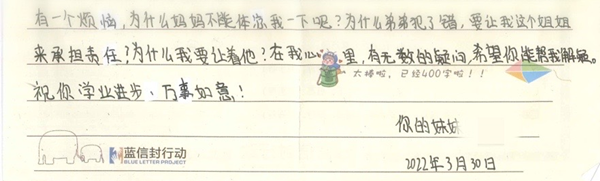 有一个烦恼，为什么妈妈不能体凉我一下呢？为什么弟弟犯了错，要让我这个姐姐
来承担责任？为什么我要让着他？在我心里，有无数的疑问，希望你能帮我解疑。
太棒啦，已经400字啦！！
祝你学业进步、万事如意！
你的妹妹
蓝信封行动
BLUE LETTER PROJECT
2022年3月30日